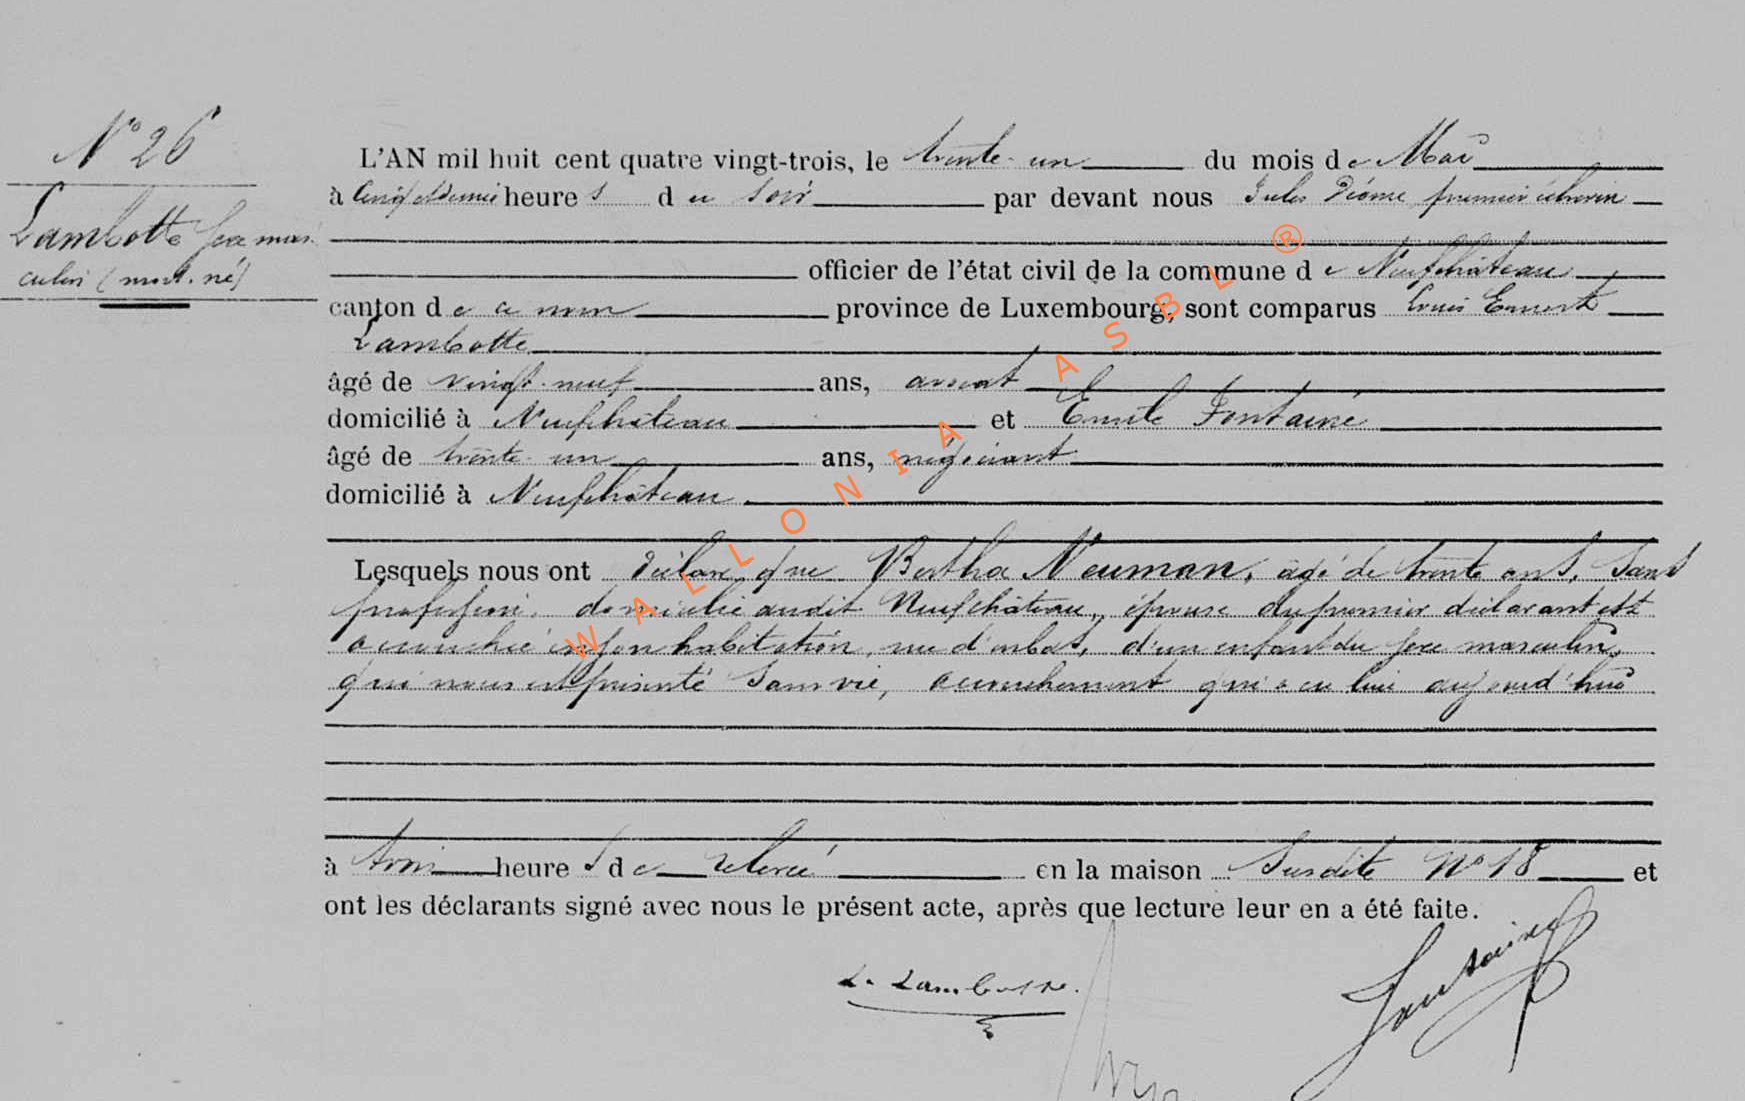 N° 26
Lambotte sexe mas-
culin (mort-né)
L'AN mil huit cent quatre vingt-trois, le trente-un du mois de Mai
à cinq et demie heures du soir par devant nous Jules Diome premier échevin
officier de l'état civil de la commune de Neufchâteau
canton de ce nom province de Luxembourg, sont comparus Louis Ernest
Lambotte
âgé de vingt-neuf ans, avocat
domicilié à Neufchâteau et Emile Fontaine
âgé de trente-un ans, négociant
domicilié à Neufchâteau
Lesquels nous ont déclaré que Bertha Neuman, âgée de trente ans, sans
profession, domiciliée audit Neufchâteau, épouse du premier déclarant est
accouchée en son habitation, rue d'enbas, d'un enfant du sexe masculin,
qui nous est présenté sans vie, accouchement qui a eu lieu aujourd'hui
à trois heures de relevée en la maison susdite N° 18 et
ont les déclarants signé avec nous le présent acte, après que lecture leur en a été faite.
L. Lambotte.
Fontaine
WALLONIA ASBL ®